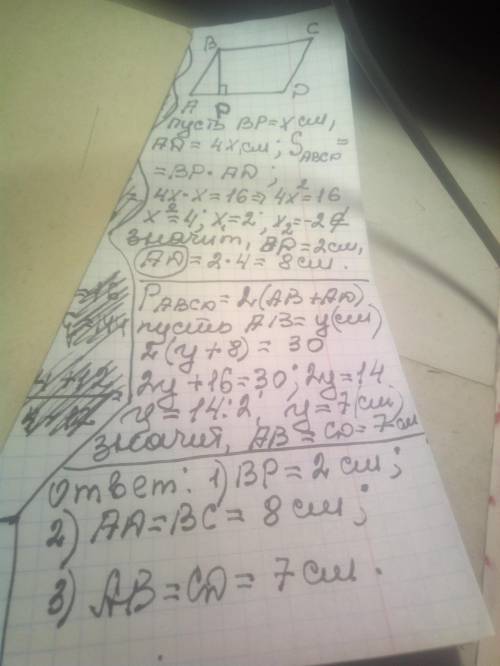 B C
A P D
пусть BP = x см,
AD = 4x см; S ABCD =
= BP · AD;
4x · x = 16 ⇒ 4x² = 16
x² = 4; x₁ = 2; x₂ = -2 ∉
значит, BP = 2 см,
AD = 2 · 4 = 8 см.
P ABCD = 2(AB + AD)
пусть AB = y (см)
2(y + 8) = 30
2y + 16 = 30; 2y = 14
y = 14 : 2; y = 7 (см)
значит, AB = CD = 7 см
Ответ: 1) BP = 2 см;
2) AD = BC = 8 см;
3) AB = CD = 7 см.